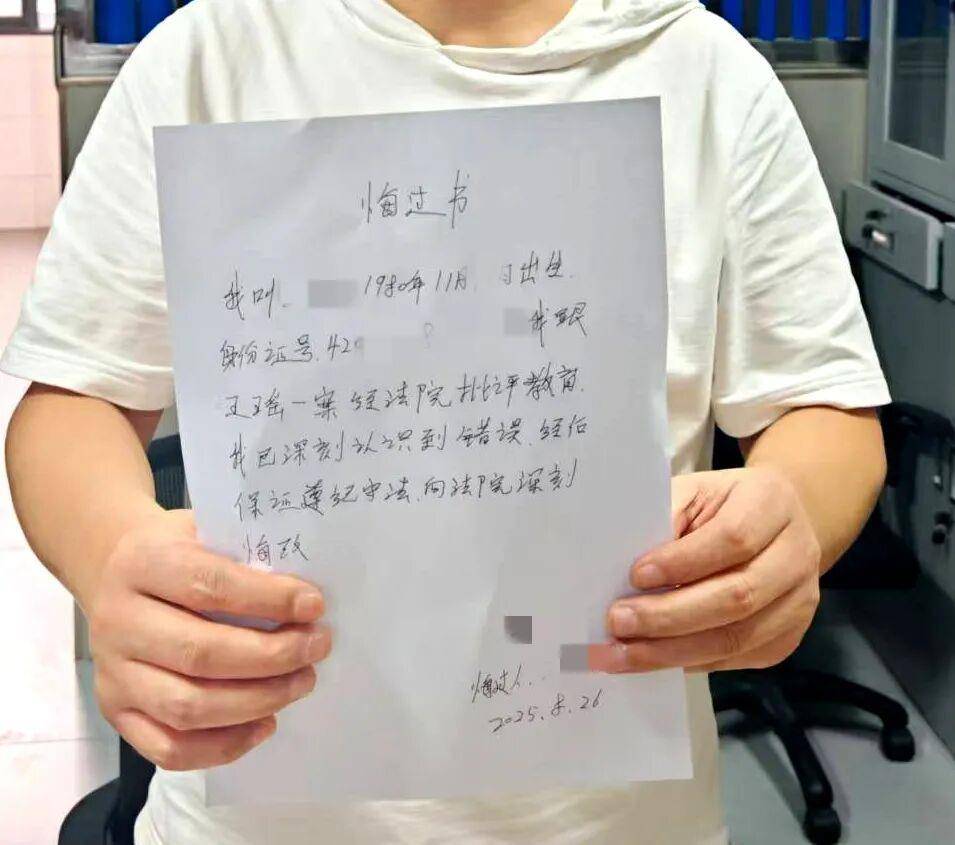 悔过书
我叫、 1980年11月 日出生.
身份证号.42 我跟
王瑶一案经法院批评教育.
我已深刻认识到错误.经后
保证遵纪守法.向法院深刻
悔改
悔过人..
2025.8.26